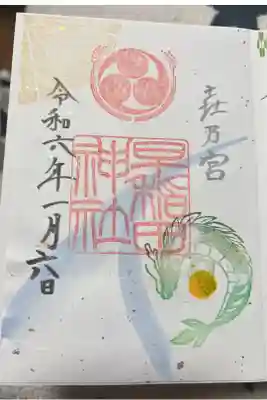 乃宮
早稲田
神社
令和六年一月六日